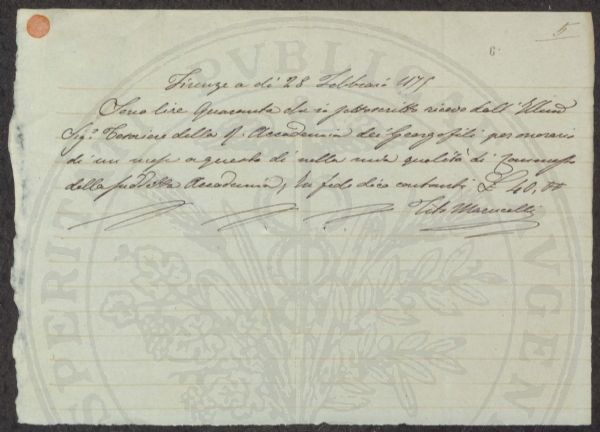 5
6.
Firenze a dì 28 Febbraio 1875
Sono lire Quaranta che io sottoscritto ricevo dall' Illmo
Sigr Tesoriere della R. Accademia dei Georgofili per onorario
di un mese a questo dì nella mia qualità di commesso
della suddetta Accademia, In fede dico contanti £ 40. 00
Tito Marucelli
PUBLICA
PROSPERITATI AUGENDAE